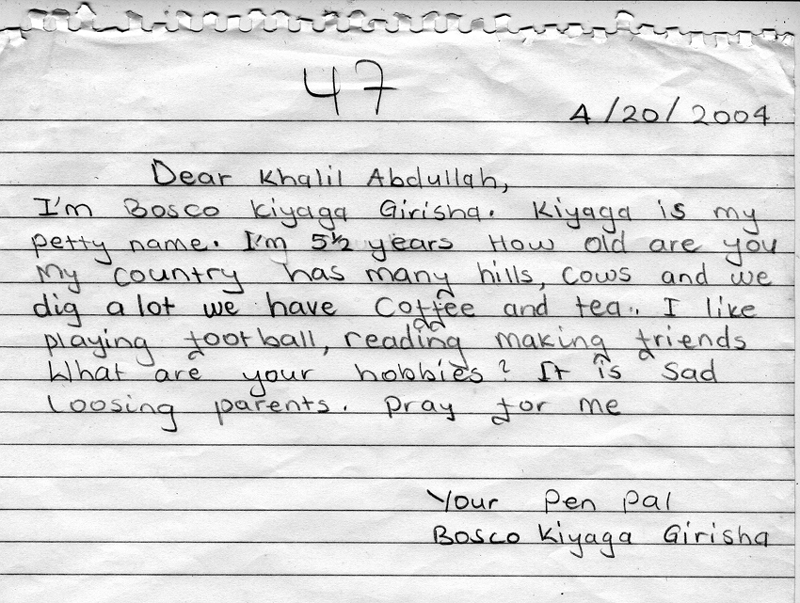 47
4/20/2004
Dear Khalil Abdullah,
I'm Bosco Kiyaga Girisha. Kiyaga is my
petty name. I'm 5½ years How old are you
My country has many hills, cows and we
dig a lot we have Coffee and tea.. I like
playing football, reading making friends
What are your hobbies? It is sad
loosing parents. Pray for me
Your Pen Pal
Bosco Kiyaga Girisha